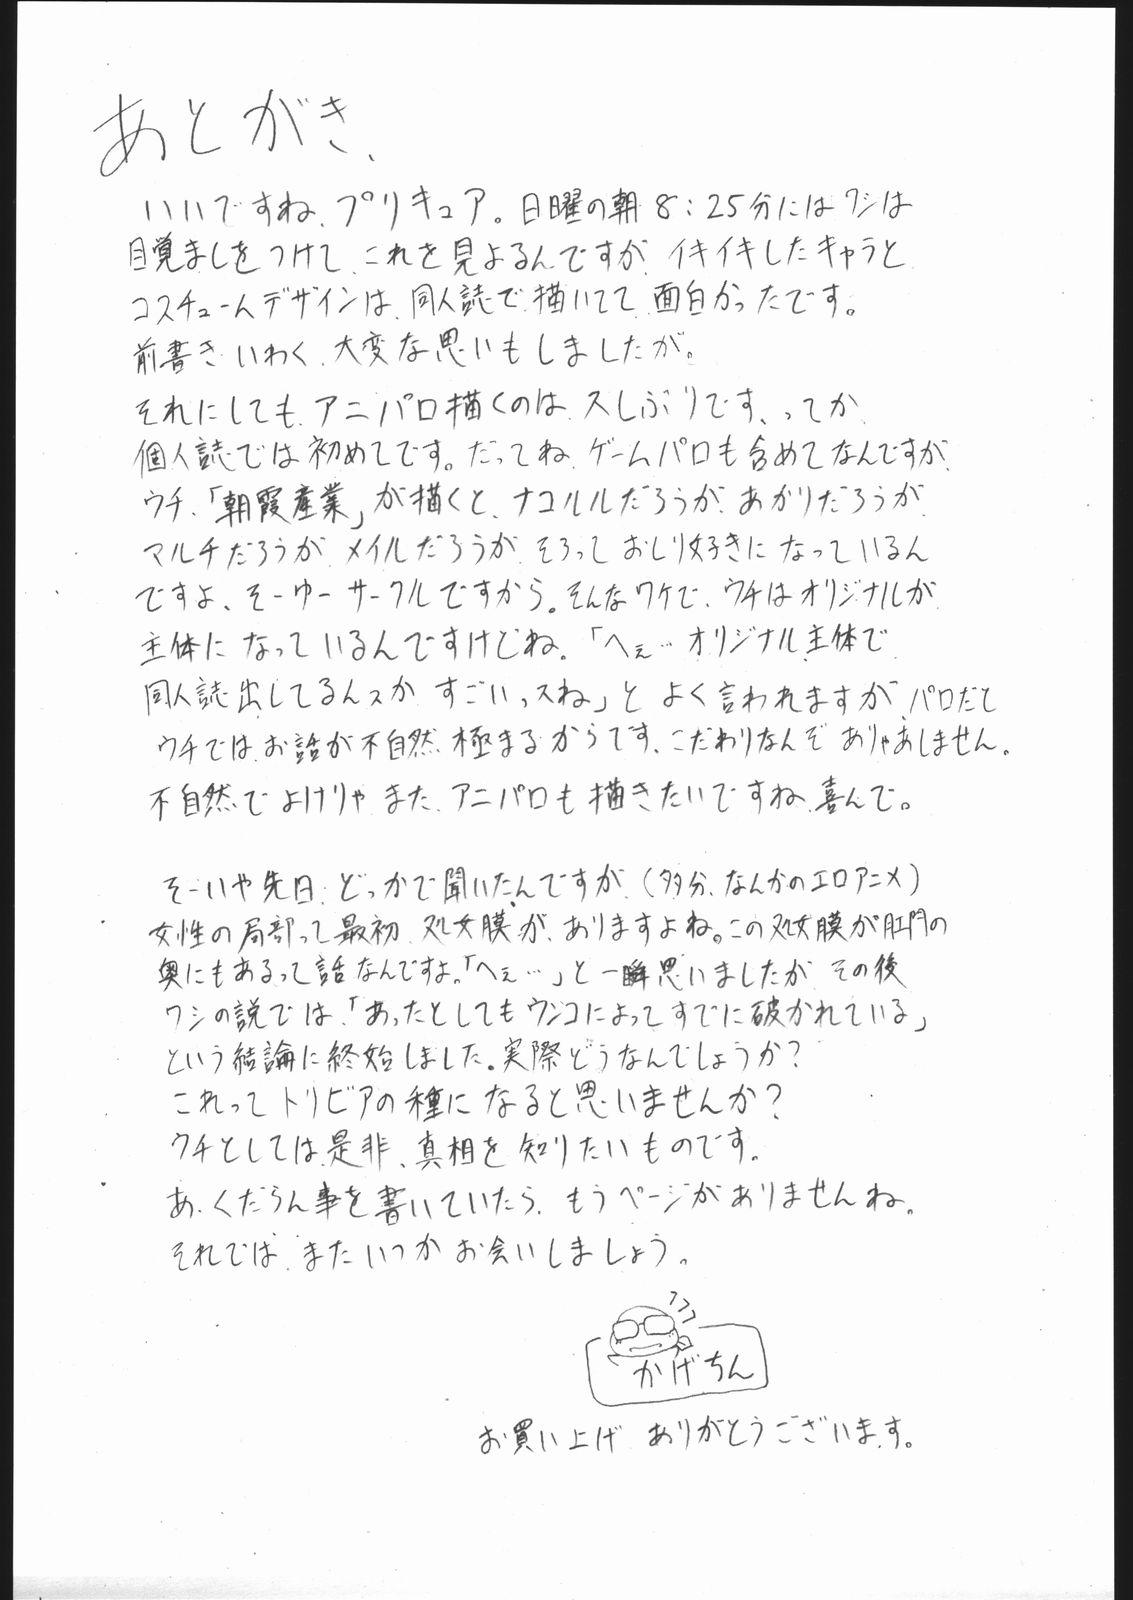 あとがき、
いいですね、プリキュア。日曜の朝8:25分にはワシは
目覚ましをつけて、これを見よるんですが、イキイキしたキャラと
コスチュームデザインは、同人誌で描いてて面白かったです。
前書きいわく、大変な思いもしましたが。
それにしても、アニパロ描くのは久しぶりです、ってか、
個人誌では初めてです。だってね、ゲームパロも含めてなんですが、
ウチ、「朝霞産業」が描くと、ナコルルだろうが、あかりだろうが、
マルチだろうが、メイルだろうが、そろっておしり好きになっているん
ですよ、そーゆーサークルですから。そんなワケで、ウチはオリジナルが
主体になっているんですけどね。「へぇ…オリジナル主体で
同人誌出してるんスか、すごいっスね」とよく言われますが、パロだと
ウチでは、お話が不自然極まるからです、こだわりなんぞありゃあしません。
不自然でよけりゃ、また、アニパロも描きたいですね、喜んで。
そーいや先日、どっかで聞いたんですが、(多分、なんかのエロアニメ)
女性の局部って最初、処女膜が、ありますよね。この処女膜が肛門の
奥にもあるって話なんですよ。「へぇ…」と一瞬思いましたが、その後
ワシの説では、「あったとしてもウンコによってすでに破かれている」
という結論に終始しました。実際どうなんでしょうか?
これってトリビアの種になると思いませんか?
ウチとしては是非、真相を知りたいものです。
あ、くだらん事を書いていたら、もうページがありませんね。
それでは、またいつかお会いしましょう。
かげちん
お買い上げ ありがとうございます。